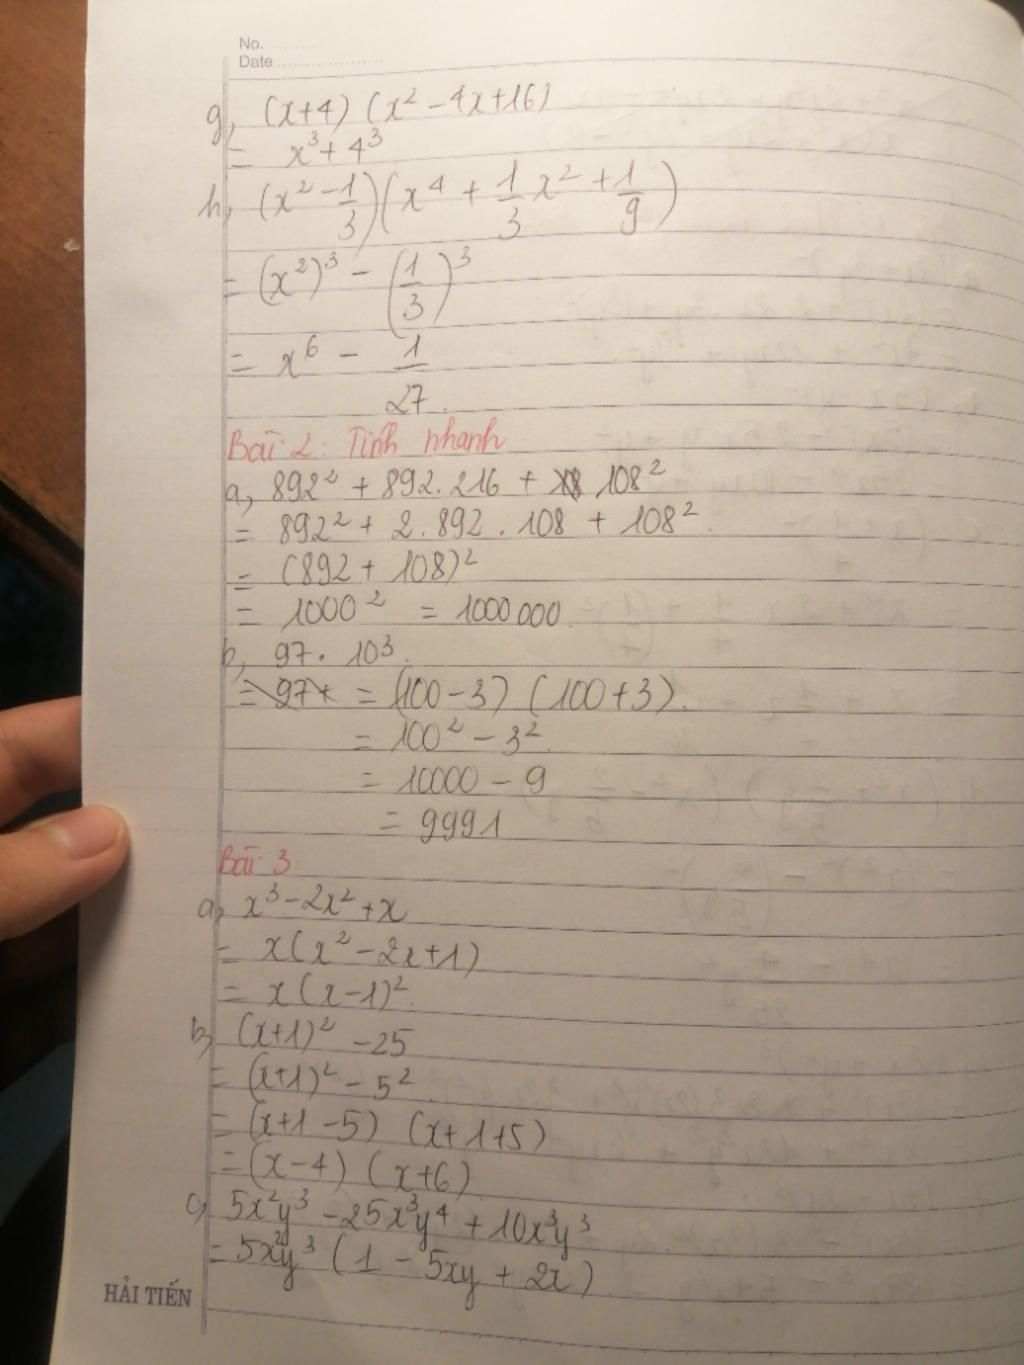 No. ..........
Date ....................
g, (x+4) (x² - 4x+16)
= x³ + 4³
h, (x² - 1/3)(x⁴ + 1/3 x² + 1/9)
= (x²)³ - (1/3)³
= x⁶ - 1/27.
Bài 2: Tính nhanh
a, 892² + 892.216 + 108²
= 892² + 2.892.108 + 108².
= (892 + 108)²
= 1000² = 1000000.
b, 97. 10³.
= 97+ = (100-3) (100+3).
= 100² - 3².
= 10000 - 9
= 9991
Bài 3
a, x³-2x²+x
= x(x²-2x+1)
= x(x-1)².
b, (x+1)² -25
= (x+1)² - 5²
= (x+1-5) (x+1+5)
= (x-4) (x+6)
c, 5x²y³ -25x³y⁴ + 10x³y³
= 5x²y³ (1 - 5xy + 2x)
HẢI TIẾN